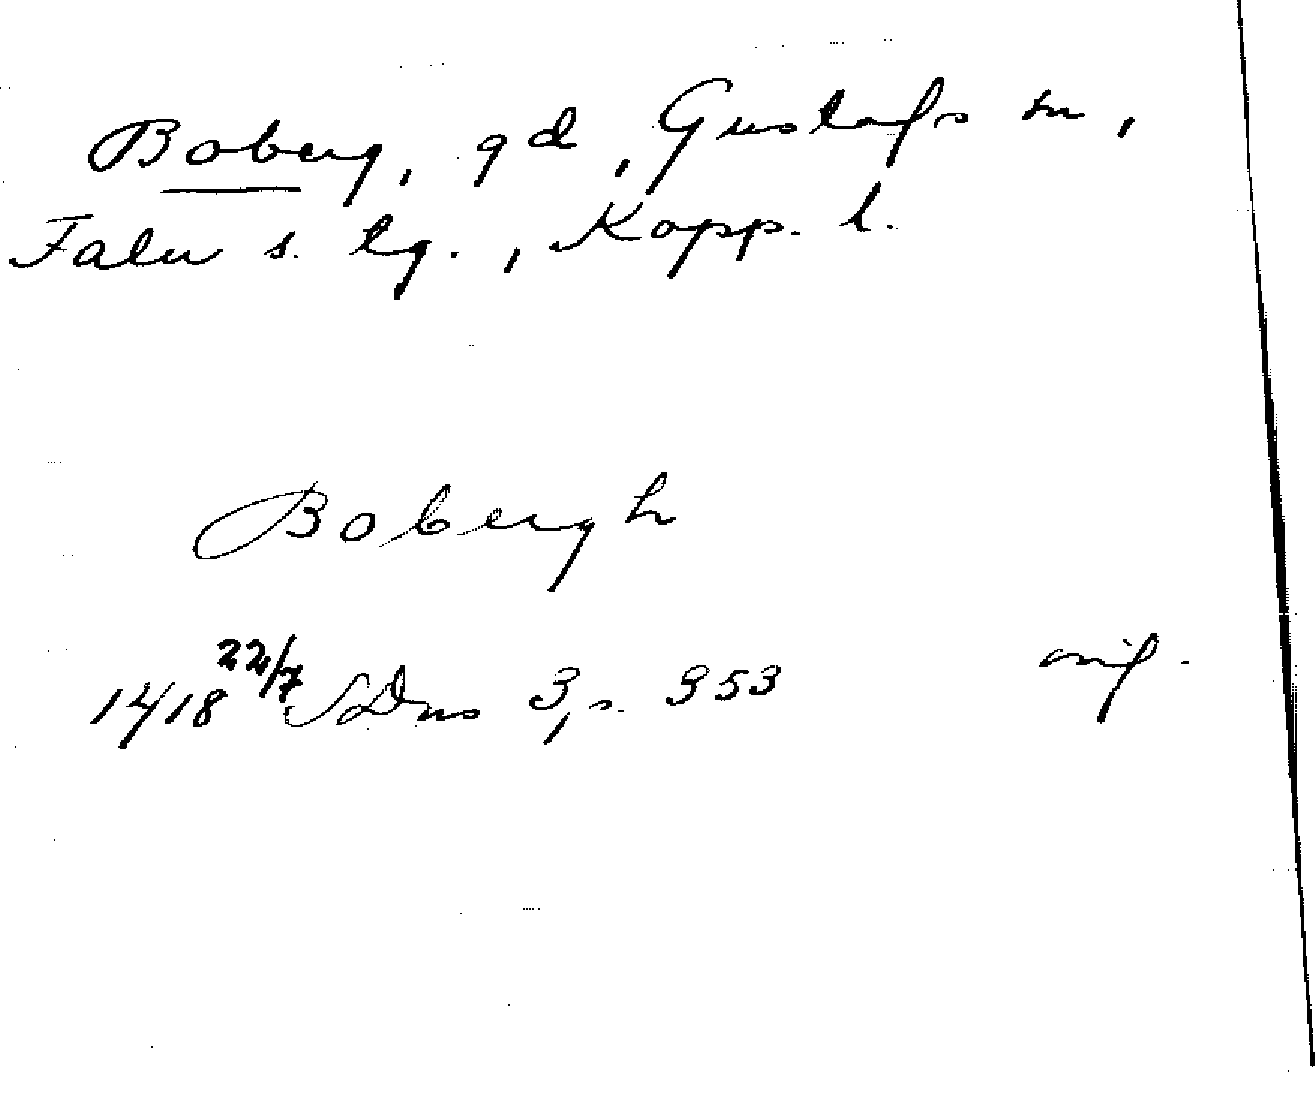 Boberg, gd, Gustafs sn,
Falu s. tg., Kopp. l.
Bobergh
1418 22/7 SDns 3, s. 353 orig.